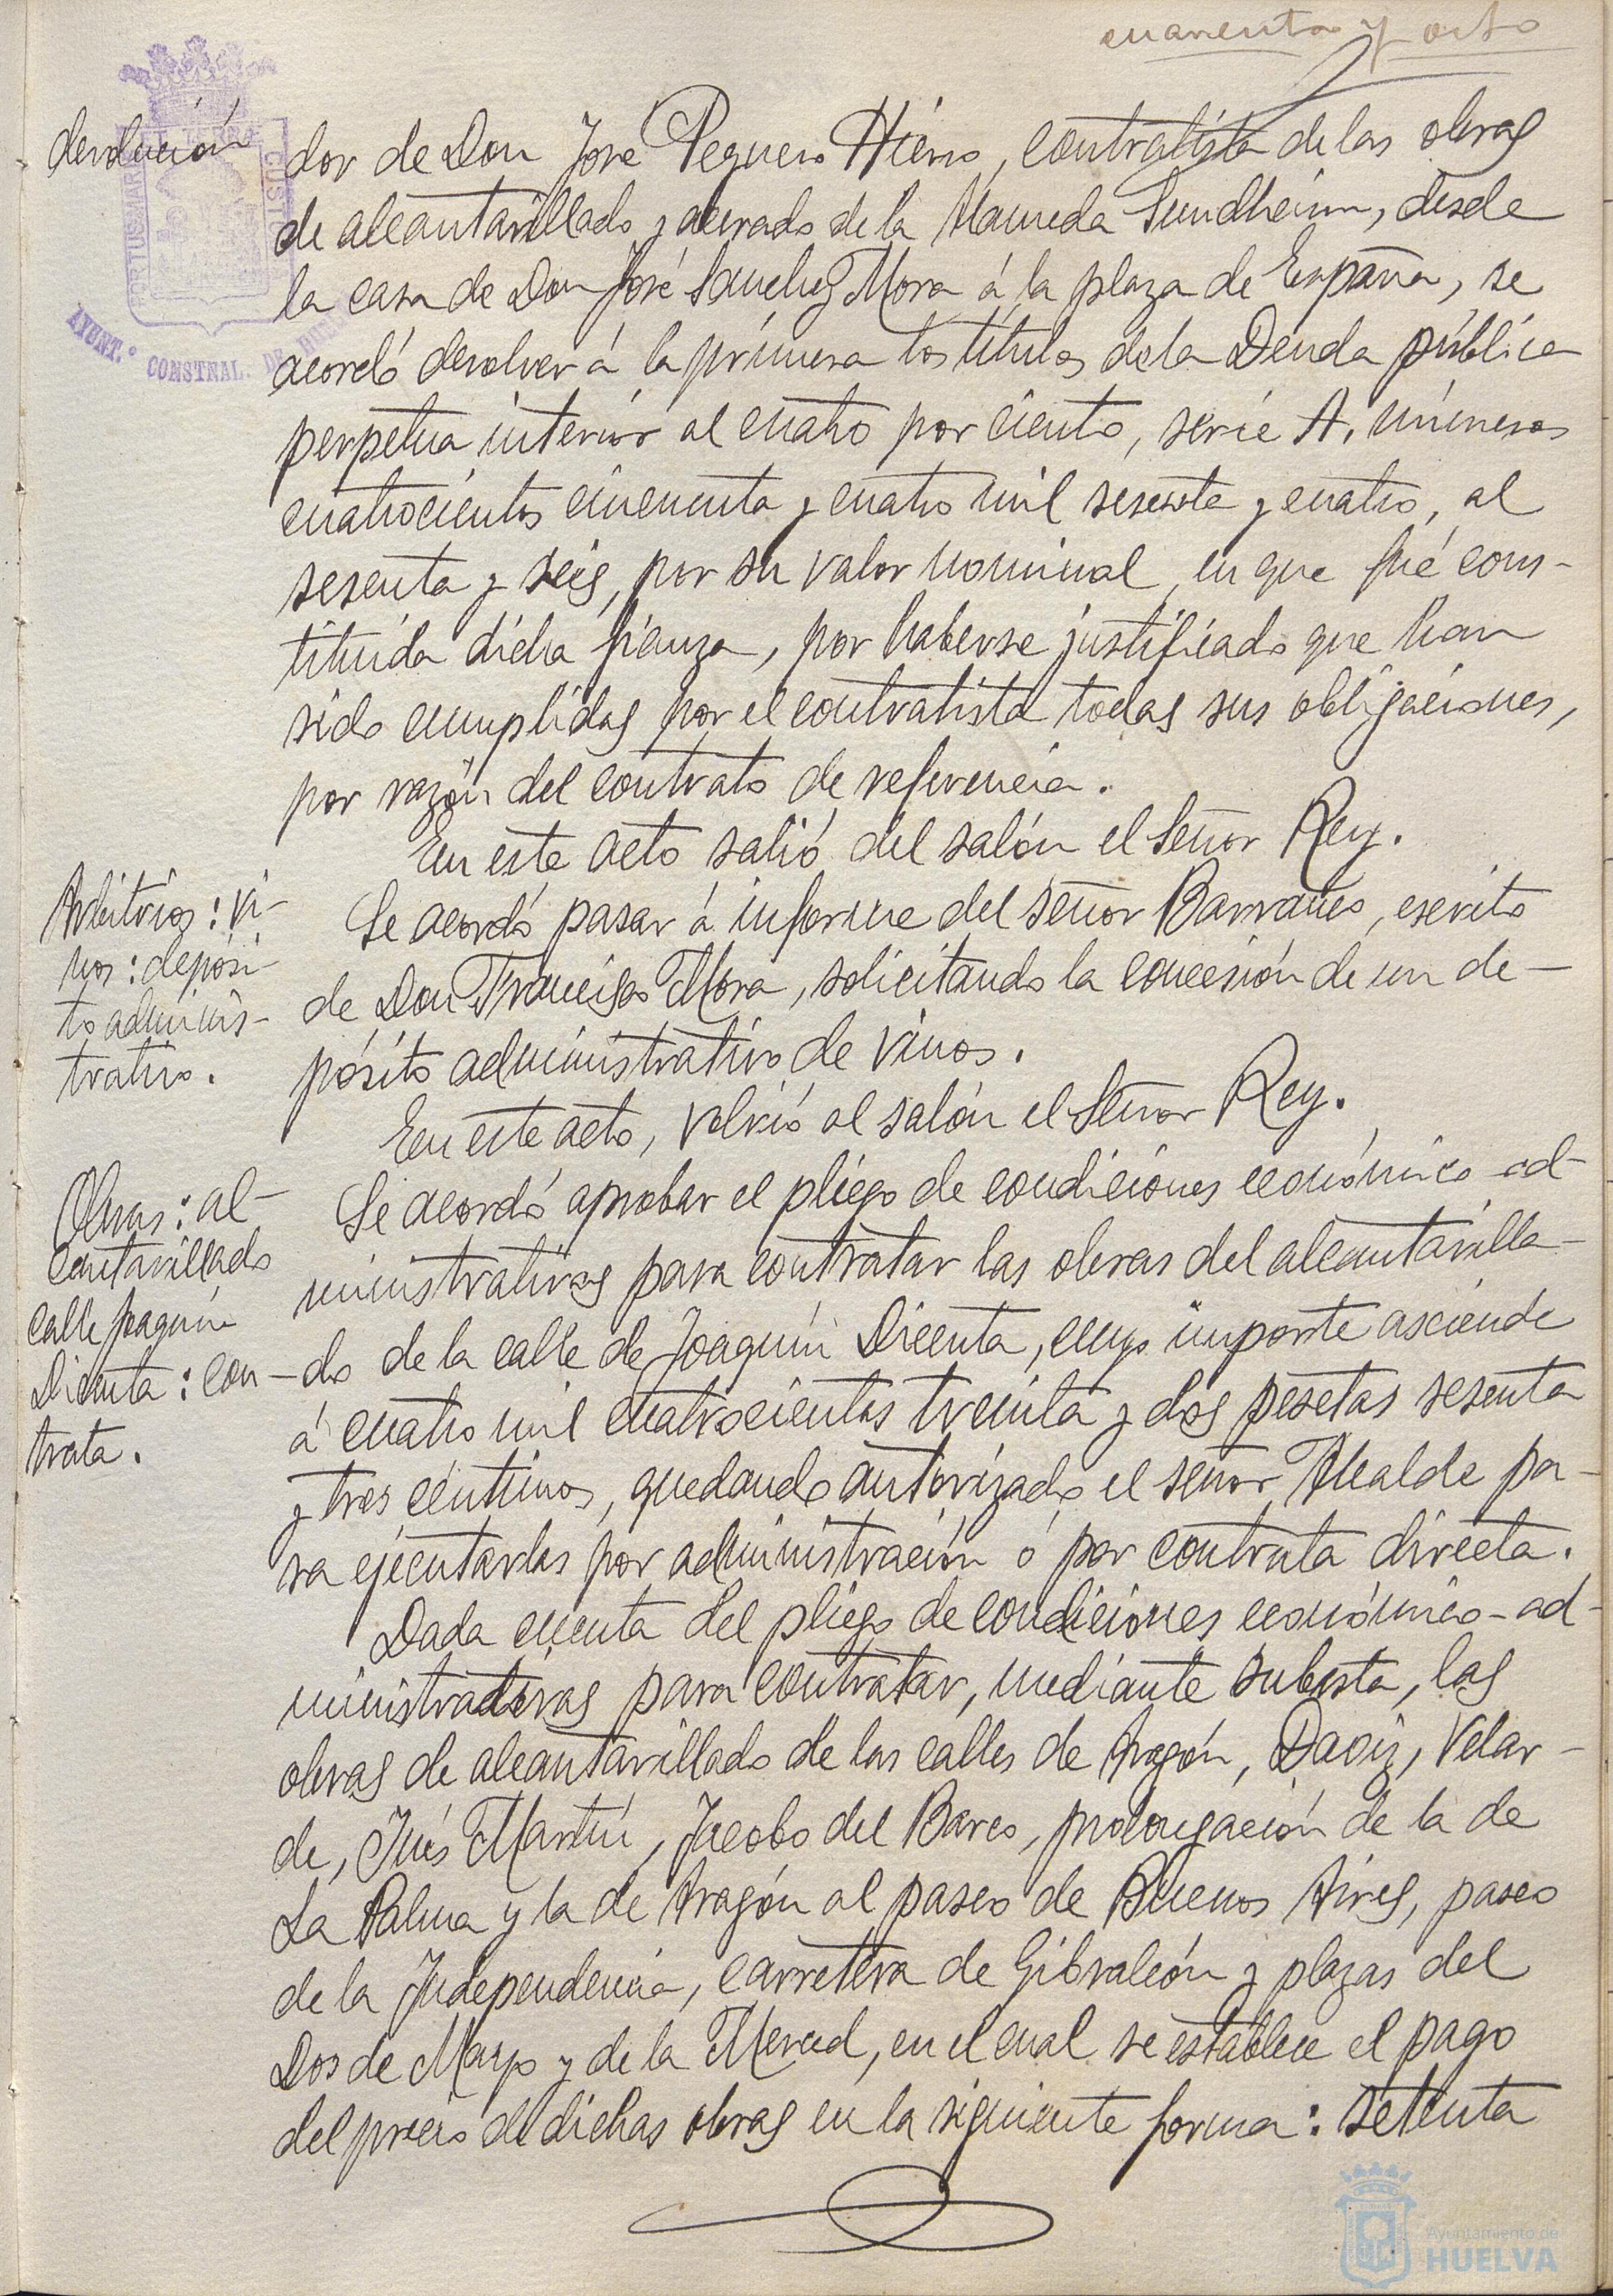 cuarenta y ocho
devolución
dor de Don José Peguero Hierro, contratista de las obras
de alcantarillado y acerado de la Alameda Sundheim, desde
la casa de Don José Sanchez Mora á la plaza de España, se
acordó devolver á la primera los títulos de la Deuda pública
perpetua interior al cuatro por ciento, serie A, números
cuatrocientos cincuenta y cuatro mil sesenta y cuatro, al
sesenta y seis, por su valor nominal, en que fué cons-
tituida dicha fianza, por haberse justificado que han
sido cumplidas por el contratista todas sus obligaciones,
por razón del contrato de referencia.
En este acto salió del salón el Señor Rey.
Arbitrios: vi-
nos: depósi-
to adminis-
trativo.
Se acordó pasar á informe del señor Barranco, escrito
de Don Francisco Mora, solicitando la concesión de un de-
pósito administrativo de vinos.
En este acto, volvió al salón el Señor Rey.
Obras: al-
cantarillado
calle Joaquín
Dicenta: con-
trata.
Se acordó aprobar el pliego de condiciones económico-ad-
ministrativas para contratar las obras del alcantarilla-
do de la calle de Joaquín Dicenta, cuyo importe asciende
á cuatro mil cuatrocientas treinta y dos pesetas sesenta
y tres céntimos, quedando autorizado el señor Alcalde pa-
ra ejecutarlas por administración ó por contrata directa.
Dada cuenta del pliego de condiciones económico-ad-
ministrativas para contratar, mediante subasta, las
obras de alcantarillado de las calles de Aragón, Daoiz, Velar-
de, Inés Martín, Jacobo del Barco, prolongación de la de
La Palma y la de Aragón al paseo de Buenos Aires, paseo
de la Independencia, carretera de Gibraleón y plazas del
Dos de Mayo y de la Merced, en el cual se establece el pago
del precio de dichas obras en la siguiente forma: setenta
PORTUS MARIS ET TERRAE CUSTODIA
AYUNT.º CONSTNAL. DE
Ayuntamiento de
HUELVA